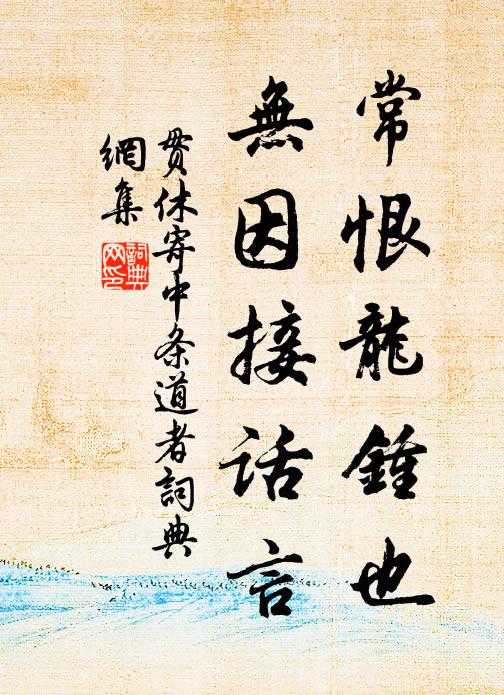 常恨龍鍾也
無因接話言
貫休寄中条道者詞典
網集
詞典
网印